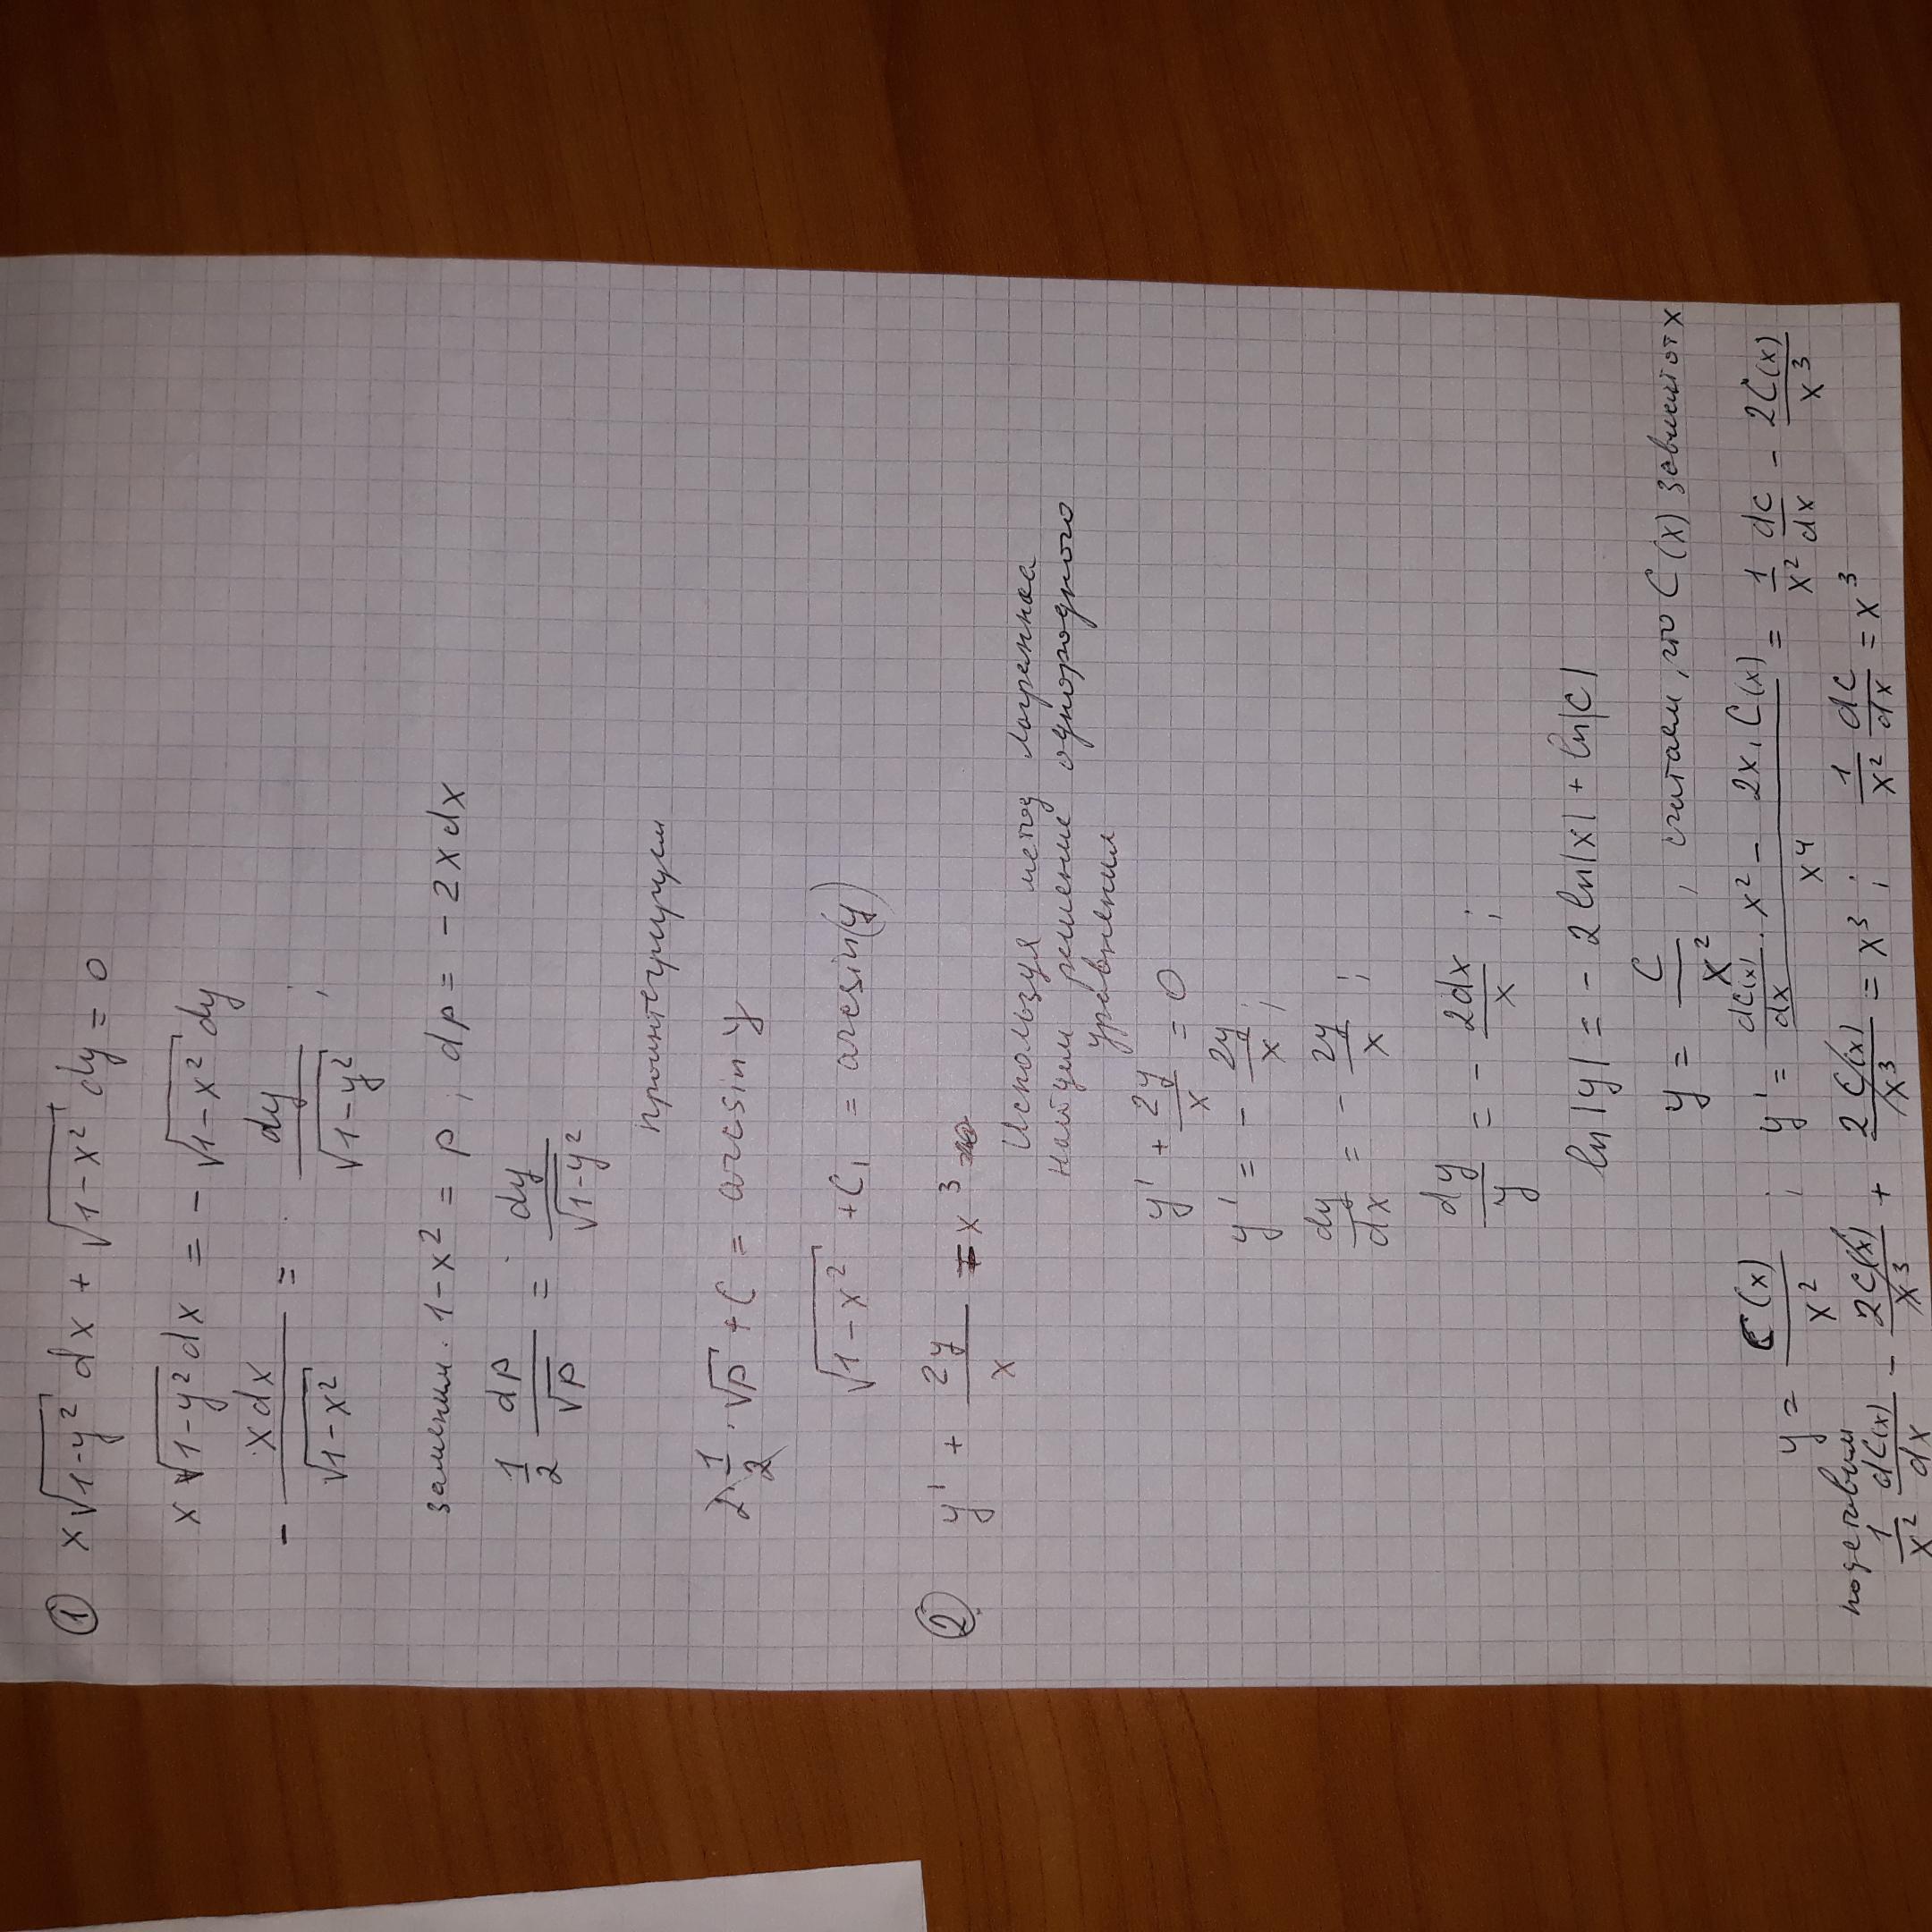 ① x√(1-y²) dx + √(1-x²) dy = 0
x√(1-y²) dx = - √(1-x²) dy
- xdx/√(1-x²) = dy/√(1-y²) ;
заменим. 1-x² = p ; dp = -2xdx
1/2 dp/√p = dy/√(1-y²)
проинтегрируем
2·1/2·√p + C = arcsin y
√(1-x²) + C₁ = arcsin(y)
② y' + 2y/x = x³
Используя метод лагранжа
найдем решение однородного
уравнения
y' + 2y/x = 0
y' = - 2y/x ;
dy/dx = - 2y/x ;
dy/y = - 2dx/x ;
ln|y| = -2 ln|x| + ln|C|
y = C/x² ; считаем, что C(x) зависит от x
y = C(x)/x² ; y' = (dC(x)/dx · x² - 2x · C(x))/x⁴ = 1/x² dc/dx - 2C(x)/x³
подставим
1/x² dC(x)/dx - 2C(x)/x³ + 2C(x)/x³ = x³ ; 1/x² dC/dx = x³